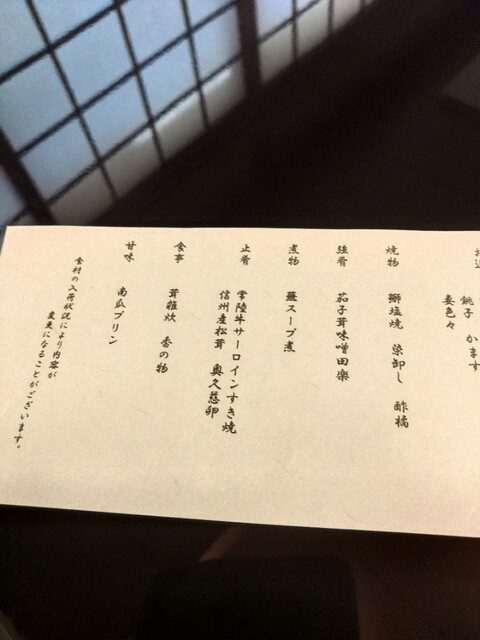 銚子 かます
妻色々
焼物
鰤塩焼 染卸し 酢橘
強肴
茄子茸味噌田楽
煮物
蕪スープ煮
止肴
常陸牛サーロインすき焼
信州産松茸 奥久慈卵
食事
茸雑炊 香の物
甘味
南瓜プリン
食材の入荷状況により内容が
変更になることがございます。